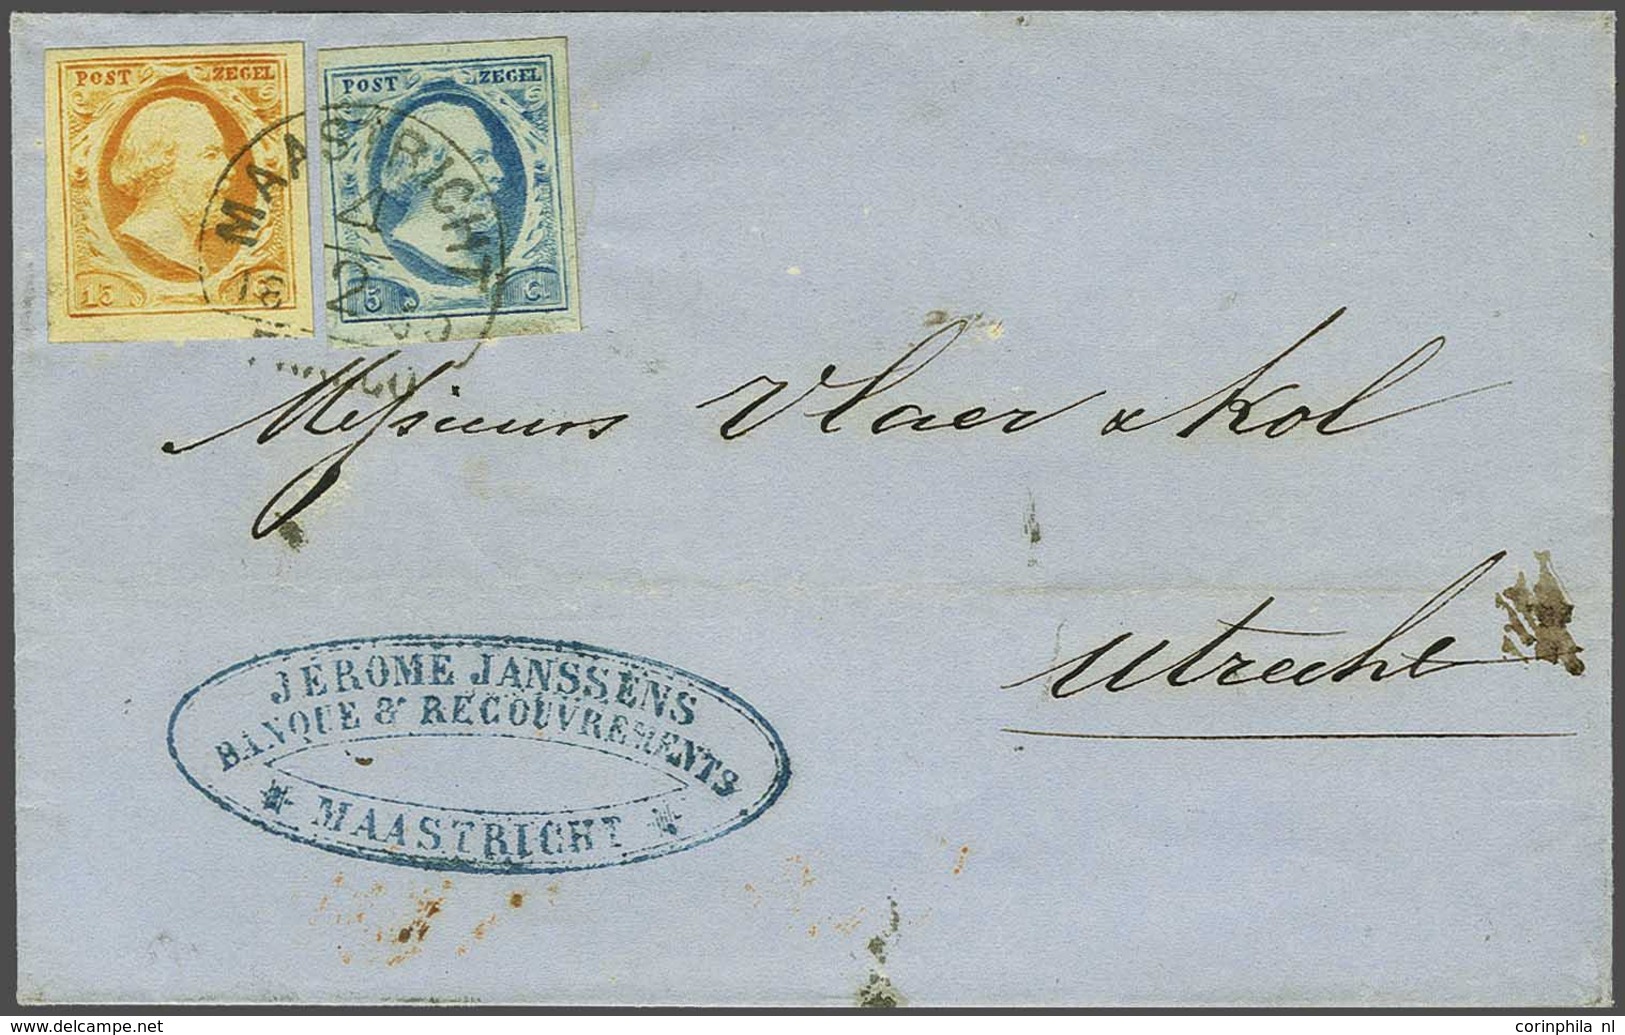 POST ZEGEL
15
POST ZEGEL
5 C.
MAASTRICHT
FRANCO
Messieurs Vlaer & Kol
Utrecht
JÉRÔME JANSSENS
BANQUE & RECOUVREMENTS
MAASTRICHT
www.delcampe.net
corinphila nl